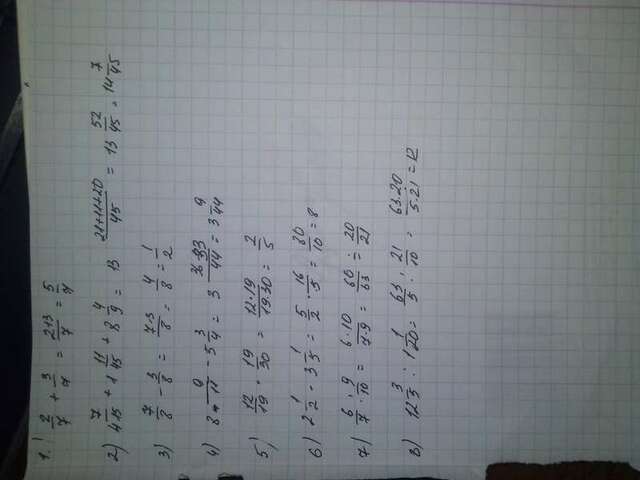 1.) 2/7 + 3/7 = 2+3/7 = 5/7
2) 4 7/15 + 1 11/45 + 8 4/9 = 13 21+11+20/45 = 13 52/45 = 14 7/45
3) 7/8 - 3/8 = 7-3/8 = 4/8 = 1/2
4) 8 9/11 - 5 3/4 = 3 36-33/44 = 3 9/44
5) 12/19 · 19/30 = 12·19/19·30 = 2/5
6) 2 1/2 · 3 1/5 = 5/2 · 16/5 = 80/10 = 8
7) 6/7 : 9/10 = 6·10/7·9 = 60/63 = 20/21
8) 12 3/5 : 1 1/20 = 63/5 : 21/10 = 63·20/5·21 = 12